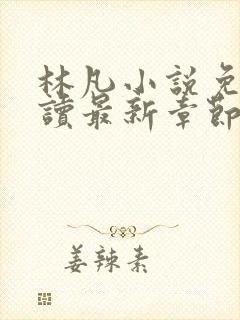 林凡小說免
讀最新章節
姜辣素